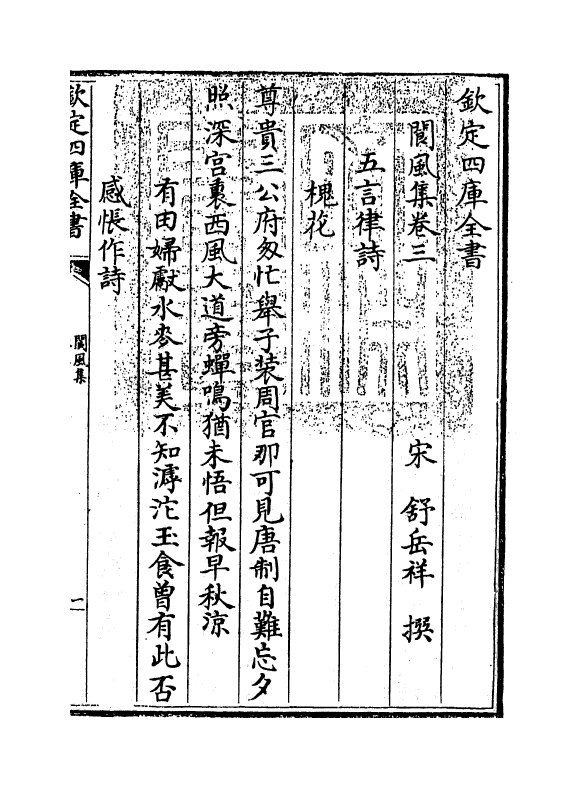 欽定四庫全書
閬風集卷三　宋　舒岳祥　撰
五言律詩
槐花
尊貴三公府匆忙舉子装周官那可見唐制自難忘夕
照深宫裏西風大道旁蟬鳴猶未悟但報早秋涼
有田婦獻水麥甚美不知滹沱玉食曾有此否
感悵作詩
欽定四庫全書
閬風集
一